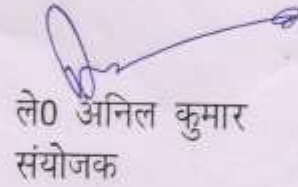 ले0 अनिल कुमार
संयोजक